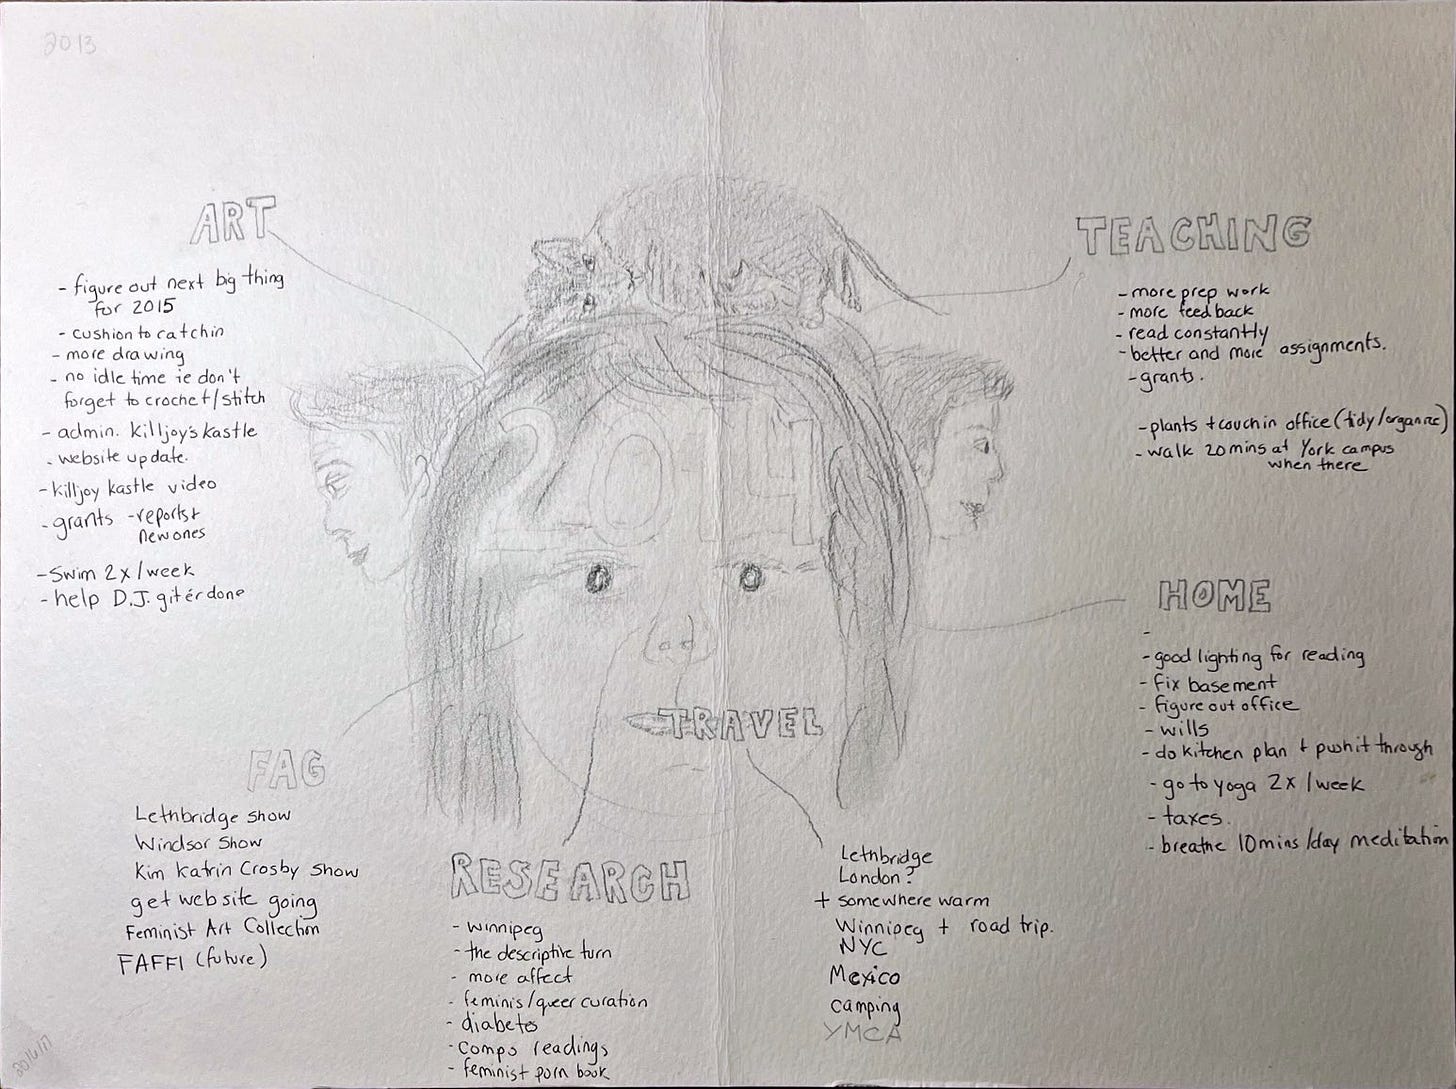 2013
ART
- figure out next big thing
for 2015
- cushion to catch in
- more drawing
- no idle time ie don't
forget to crochet/stitch
- admin. killjoy's kastle
- website update.
- killjoy kastle video
- grants - reports +
new ones
- Swim 2x/week
- help D.J. gitérdone
TEACHING
- more prep work
- more feedback
- read constantly
- better and more assignments.
- grants.
- plants + couch in office (tidy/organize)
- walk 20 mins at York campus
when there
2014
HOME
-
- good lighting for reading
- fix basement
- figure out office
- wills
- do kitchen plan + push it through
- go to yoga 2x/week
- taxes.
- breathe 10 mins/day meditation
FAG
Lethbridge show
Windsor Show
Kim Katrin Crosby show
get website going
Feminist Art Collection
FAFFI (future)
RESEARCH
- winnipeg
- the descriptive turn
- more affect
- feminis/queer curation
- diabetes
- comps readings
- feminist porn book
TRAVEL
Lethbridge
London?
+ somewhere warm
Winnipeg + road trip.
NYC
Mexico
camping
YMCA